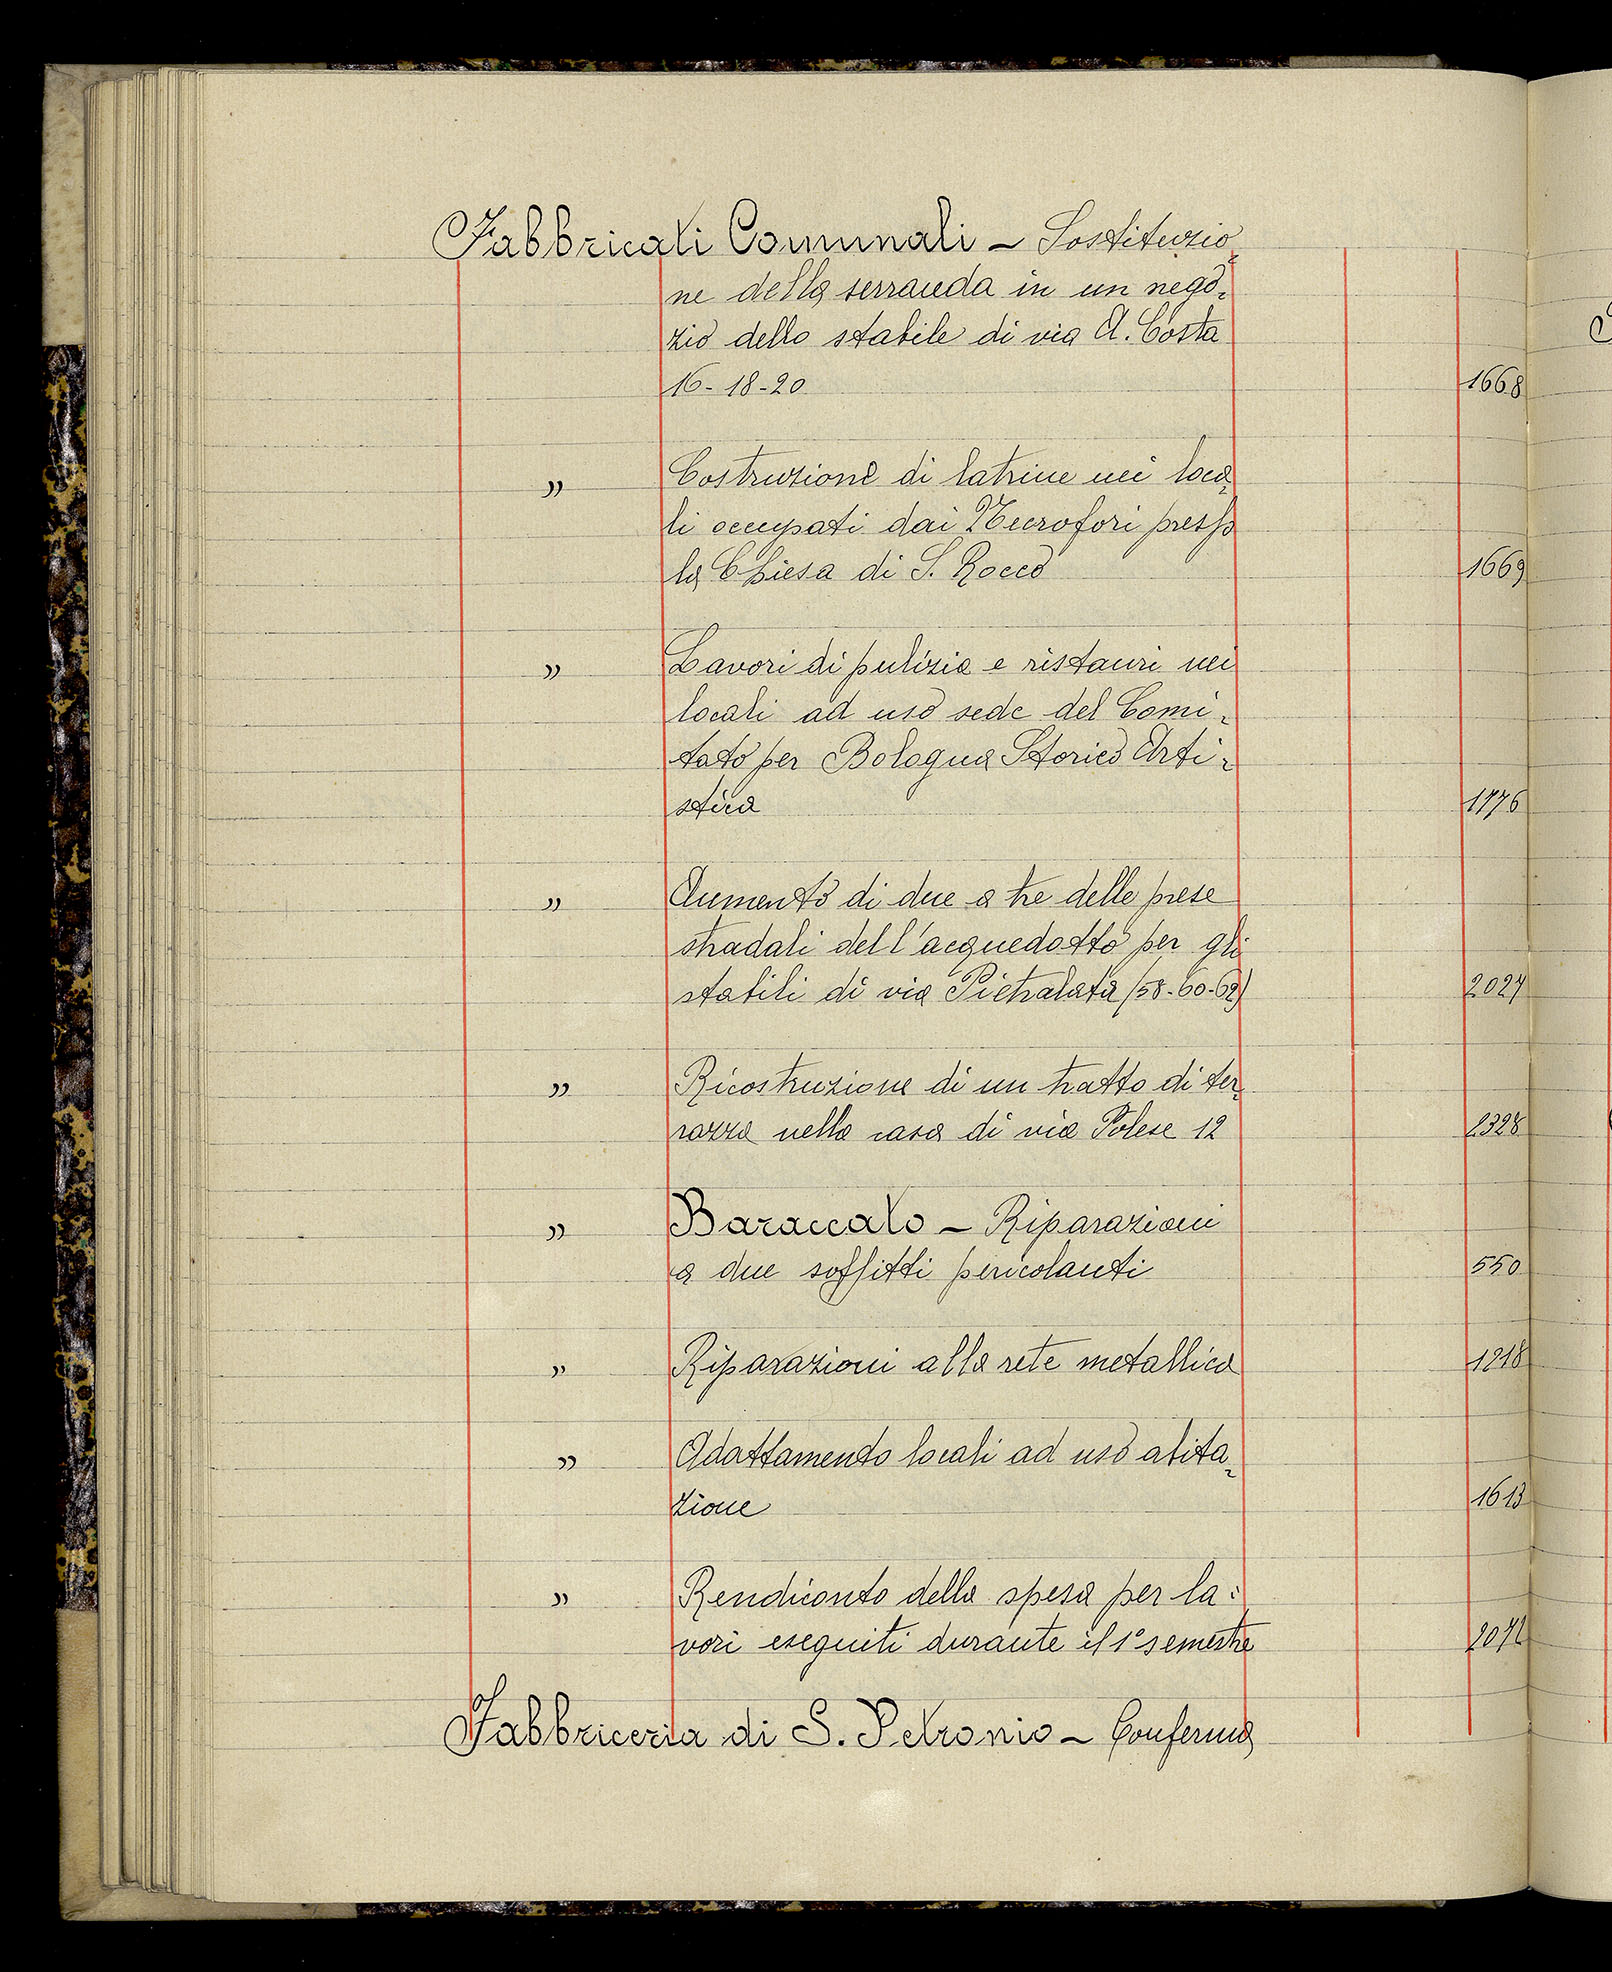 Fabbricati Comunali - Sostituzio=
ne della serranda in un nego=
zio dello stabile di via A. Costa
16-18-20 1668
" Costruzione di latrine nei loca=
li occupati dai Necrofori presso
la Chiesa di S. Rocco 1669
" Lavori di pulizia e ristauri nei
locali ad uso sede del Comi=
tato per Bologna Storico Arti=
stica 1776
" Aumento di due a tre delle prese
stradali dell'acquedotto per gli
stabili di via Pietralata (58-60-62) 2027
" Ricostruzione di un tratto di ter=
razza nella casa di via Polese 12 2328
" Baraccato - Riparazioni
a due soffitti pericolanti 550
" Riparazioni alla rete metallica 1218
" Adattamento locali ad uso abita=
zione 1613
" Rendiconto della spesa per la=
vori eseguiti durante il 1° semestre
Fabbriceria di S. Petronio - Conferma